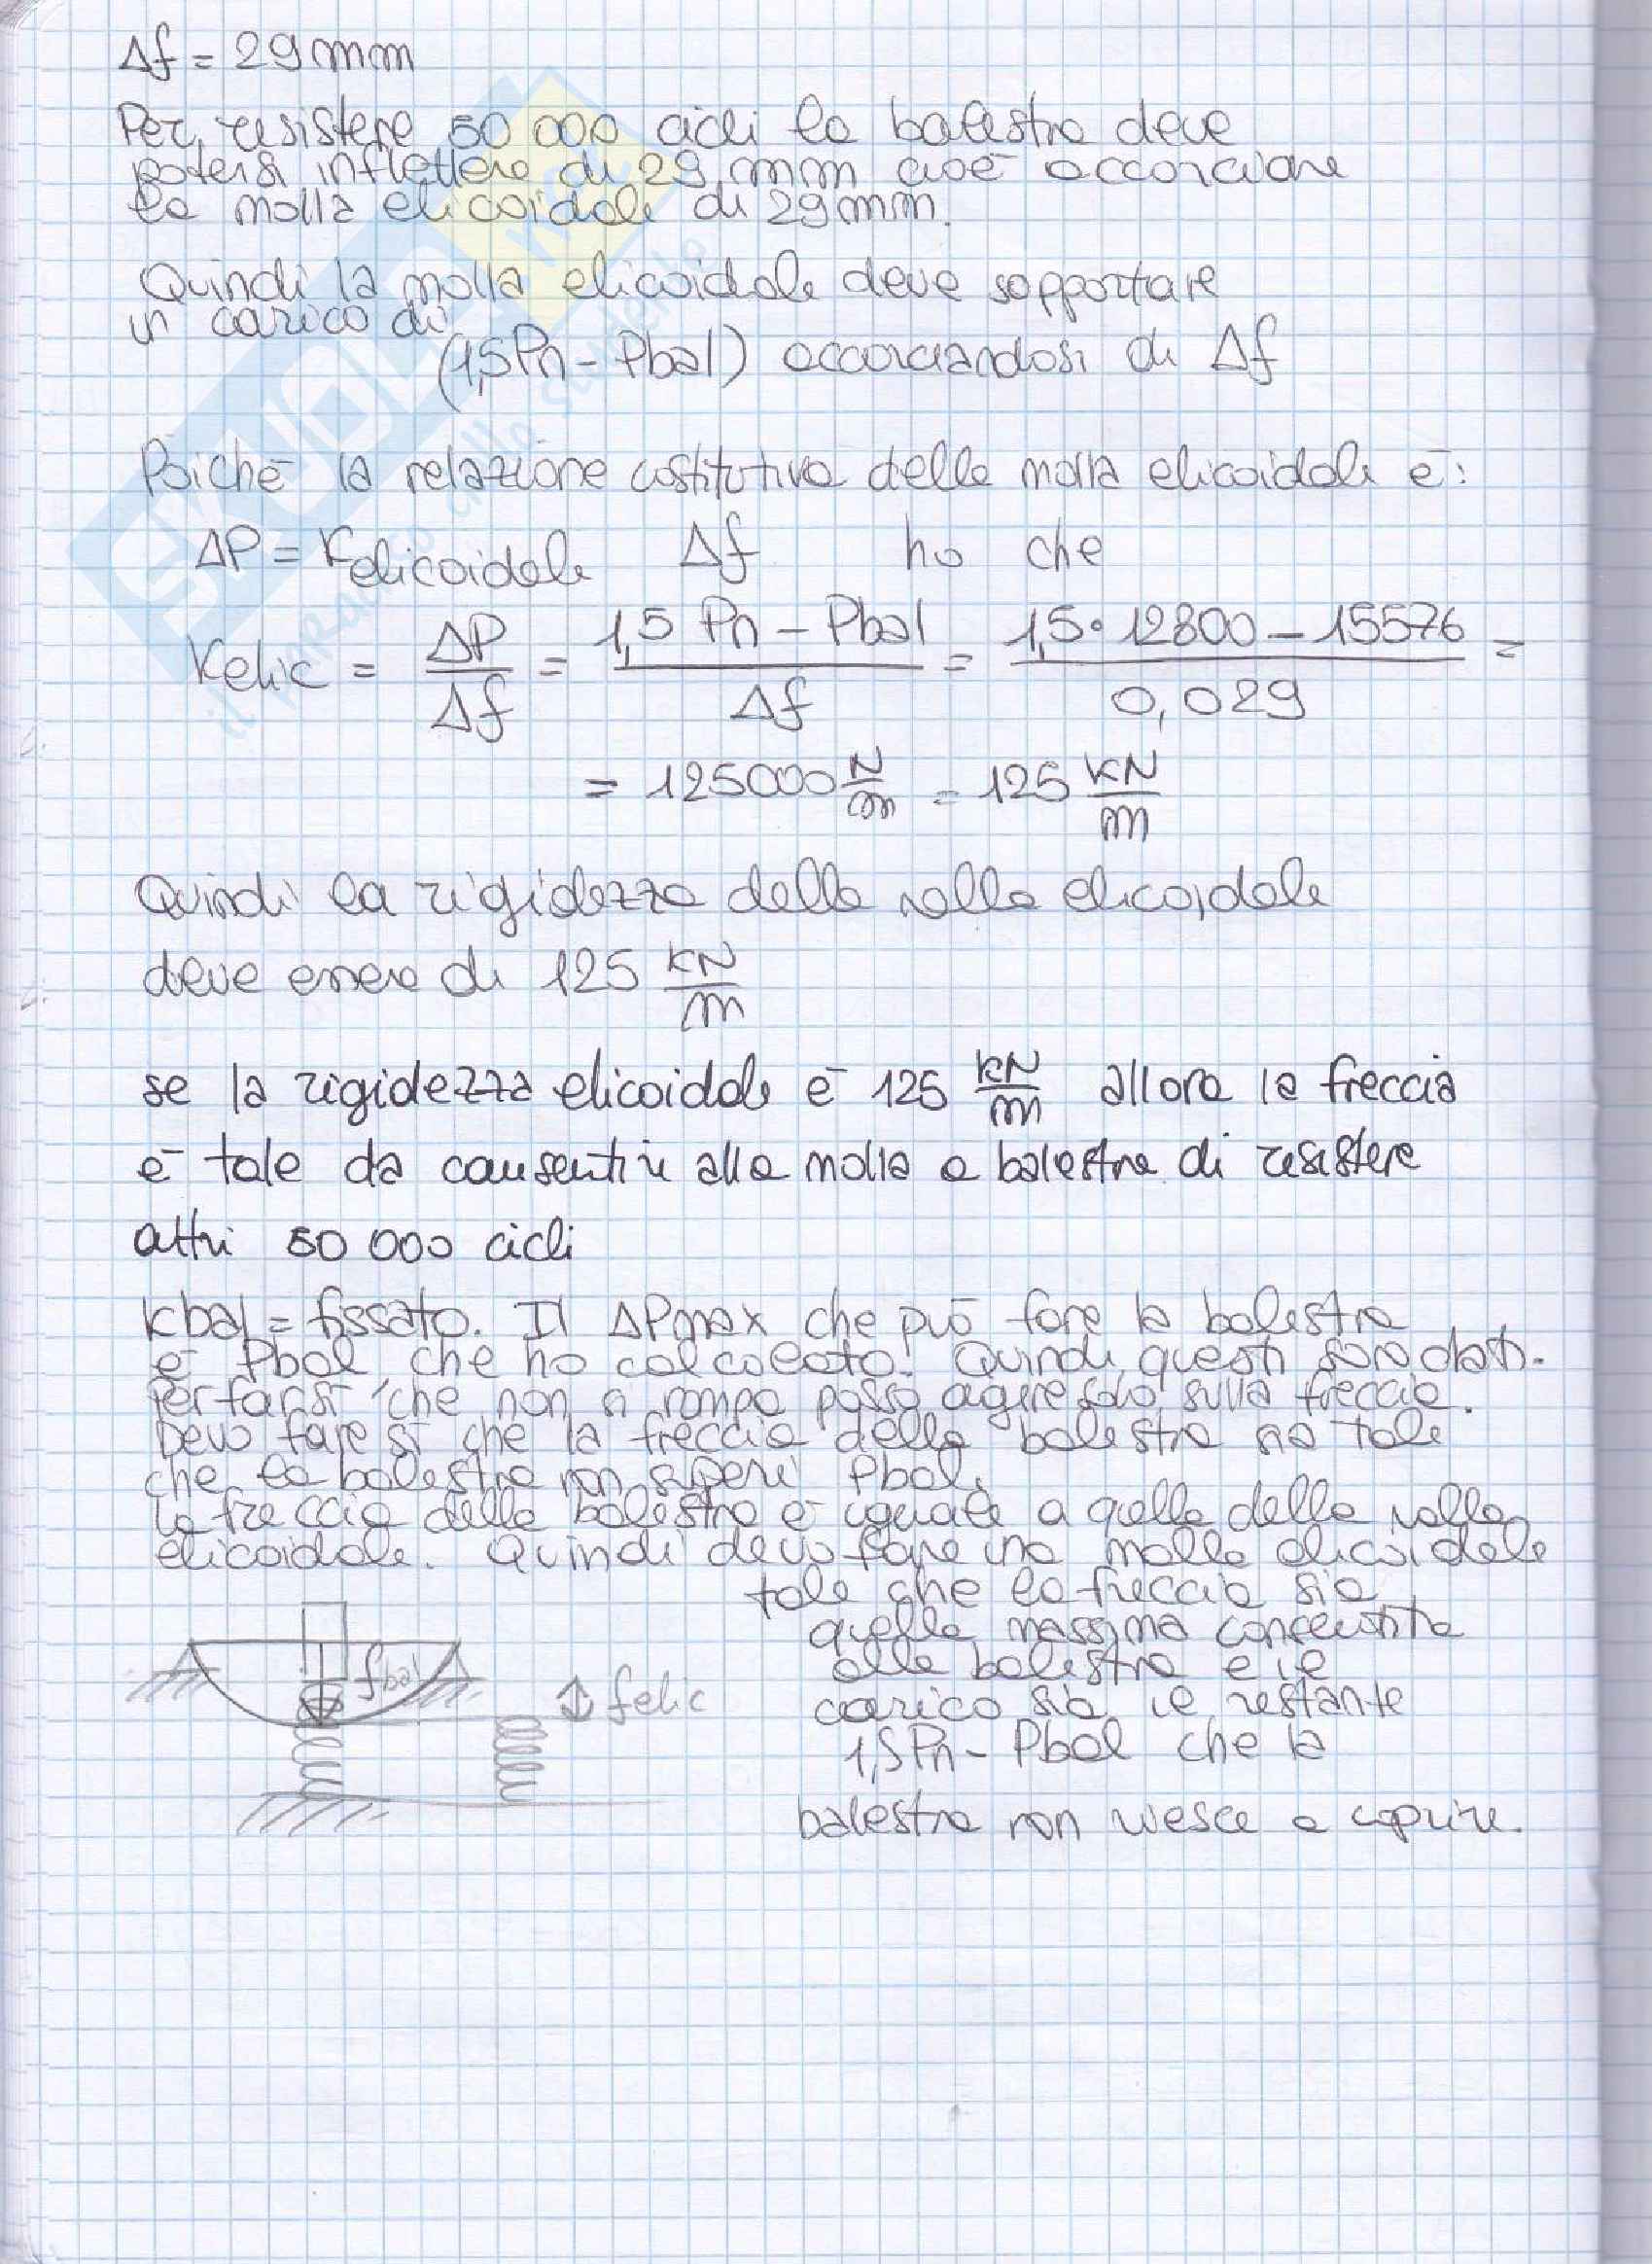 Δf = 29 mm
Per resistere 50 000 cicli la balestra deve
potersi inflettere di 29 mm cioè accorciare
la molla elicoidale di 29 mm.
Quindi la molla elicoidale deve sopportare
un carico di
(1,5Pn - Pbal) accorciandosi di Δf
Poichè la relazione costitutiva della molla elicoidale è:
ΔP = Kelicoidale Δf ho che
Kelic = ΔP/Δf = (1,5 Pn - Pbal)/Δf = (1,5·12800 - 15576)/0,029 =
= 125000 N/m = 125 KN/m
Quindi la rigidezza della molla elicoidale
deve essere di 125 KN/m
se la rigidezza elicoidale è 125 KN/m allora la freccia
è tale da consentire alla molla a balestra di resistere
altri 50 000 cicli
Kbal = fissato. Il ΔPmax che può fare la balestra
è Pbal che ho calcolato. Quindi questi sono dati.
Per far sì che non si rompa posso agire solo sulla freccia.
Devo fare sì che la freccia della balestra sia tale
che la balestra non superi Pbal.
La freccia della balestra è uguale a quella della molla
elicoidale. Quindi devo fare una molla elicoidale
tale che la freccia sia
quella massima consentita
alla balestra e il
carico sia il restante
1,5Pn - Pbal che la
balestra non riesce a coprire.
fbal
felic
SKUOLA.net
il paradiso dello studente